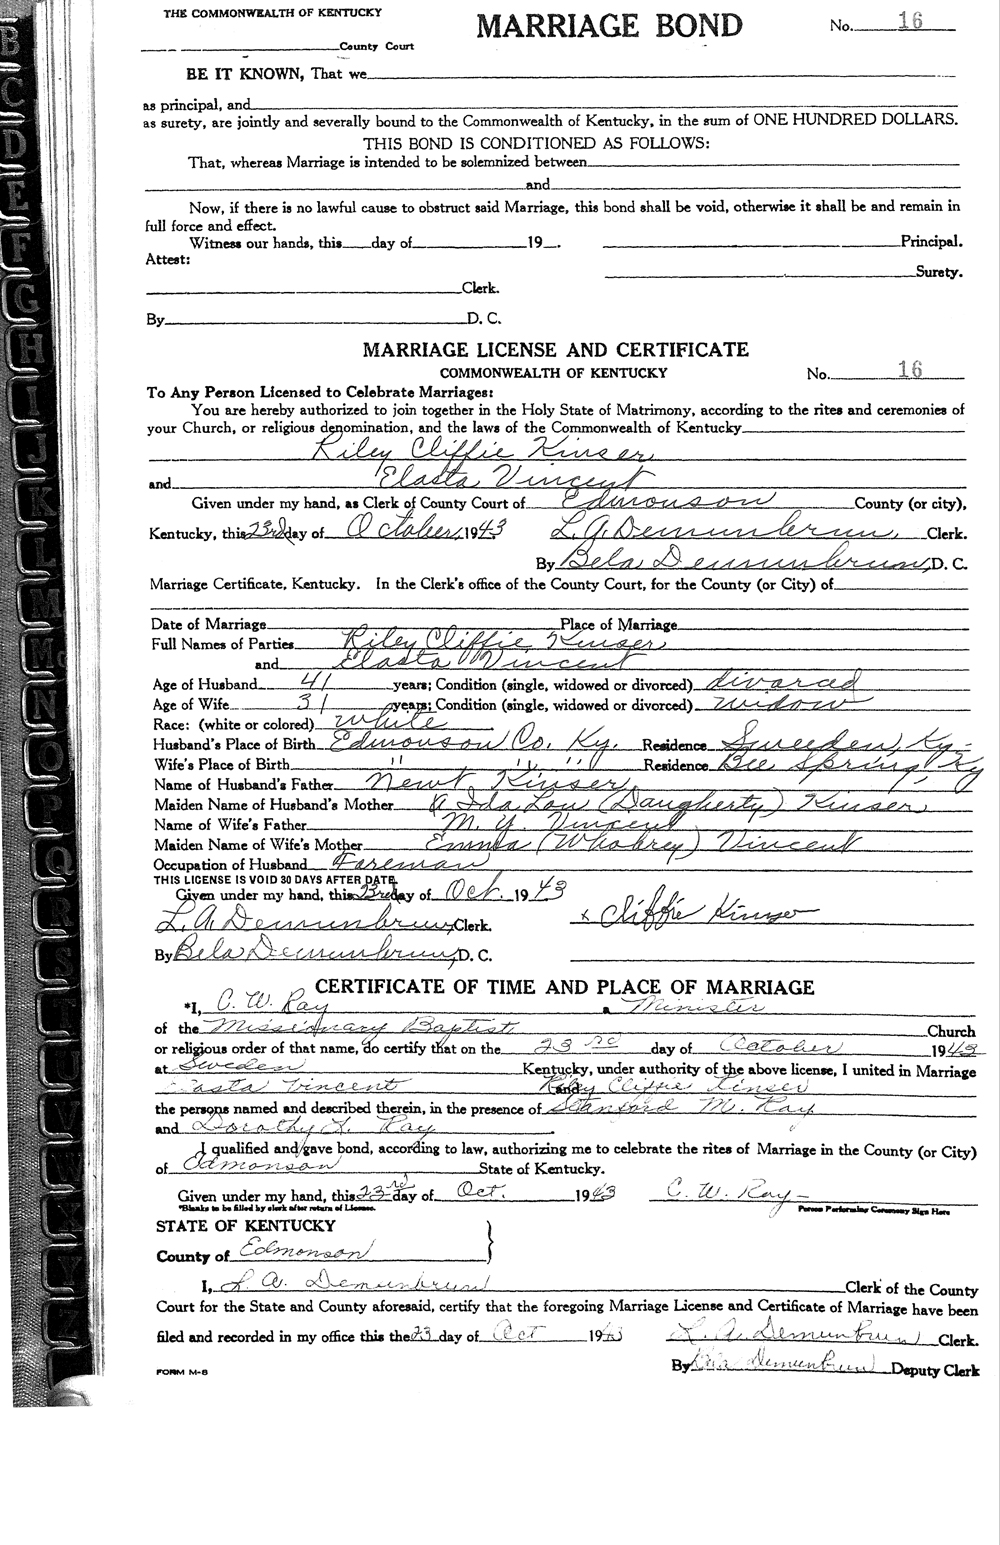 THE COMMONWEALTH OF KENTUCKY
MARRIAGE BOND
No. 16
County Court
BE IT KNOWN, That we
as principal, and
as surety, are jointly and severally bound to the Commonwealth of Kentucky, in the sum of ONE HUNDRED DOLLARS.
THIS BOND IS CONDITIONED AS FOLLOWS:
That, whereas Marriage is intended to be solemnized between
and
Now, if there is no lawful cause to obstruct said Marriage, this bond shall be void, otherwise it shall be and remain in
full force and effect.
Witness our hands, this day of 19 . Principal.
Attest:
Surety.
Clerk.
By D. C.
MARRIAGE LICENSE AND CERTIFICATE
COMMONWEALTH OF KENTUCKY
No. 16
To Any Person Licensed to Celebrate Marriages:
You are hereby authorized to join together in the Holy State of Matrimony, according to the rites and ceremonies of
your Church, or religious denomination, and the laws of the Commonwealth of Kentucky
Riley Cliffie Kinser
and Elasta Vincent
Given under my hand, as Clerk of County Court of Edmonson County (or city),
Kentucky, this 23rd day of October, 1943 L. A. Demunbrun, Clerk.
By Bela Demunbrun, D. C.
Marriage Certificate, Kentucky. In the Clerk's office of the County Court, for the County (or City) of
Date of Marriage Place of Marriage
Full Names of Parties Riley Cliffie Kinser,
and Elasta Vincent
Age of Husband 41 years; Condition (single, widowed or divorced) divorced
Age of Wife 31 years; Condition (single, widowed or divorced) widow
Race: (white or colored) white
Husband's Place of Birth Edmonson Co. Ky. Residence Sweeden, Ky-
Wife's Place of Birth " " " Residence Bee Spring, Ky
Name of Husband's Father Newt Kinser,
Maiden Name of Husband's Mother Ida Lou (Daugherty) Kinser,
Name of Wife's Father M. Y. Vincent
Maiden Name of Wife's Mother Emma (Whobrey) Vincent
Occupation of Husband Foreman
THIS LICENSE IS VOID 30 DAYS AFTER DATE
Given under my hand, this 23rd day of Oct. 1943
L. A. Demunbrun, Clerk. x Cliffie Kinser
By Bela Demunbrun, D. C.
CERTIFICATE OF TIME AND PLACE OF MARRIAGE
*I, C. W. Ray a Minister
of the Missionary Baptist Church
or religious order of that name, do certify that on the 23rd day of October 1943
at Sweden Kentucky, under authority of the above license, I united in Marriage
Elasta Vincent and Riley Cliffie Kinser
the persons named and described therein, in the presence of Stanford M. Ray
and Dorothy L. Ray
I qualified and gave bond, according to law, authorizing me to celebrate the rites of Marriage in the County (or City)
of Edmonson State of Kentucky.
Given under my hand, this 23rd day of Oct. 1943 C. W. Ray-
*Blanks to be filled by clerk after return of License. Person Performing Ceremony Sign Here
STATE OF KENTUCKY
County of Edmonson
I, L. A. Demunbrun Clerk of the County
Court for the State and County aforesaid, certify that the foregoing Marriage License and Certificate of Marriage have been
filed and recorded in my office this the 23 day of Oct 1943 L. A. Demunbrun Clerk.
By Bela Demunbrun Deputy Clerk
FORM M-8
B
C
D
E
F
G
H
I
J
K
L
M
Mc
N
O
P
Q
R
S
T
U
V
W
X
Y
Z